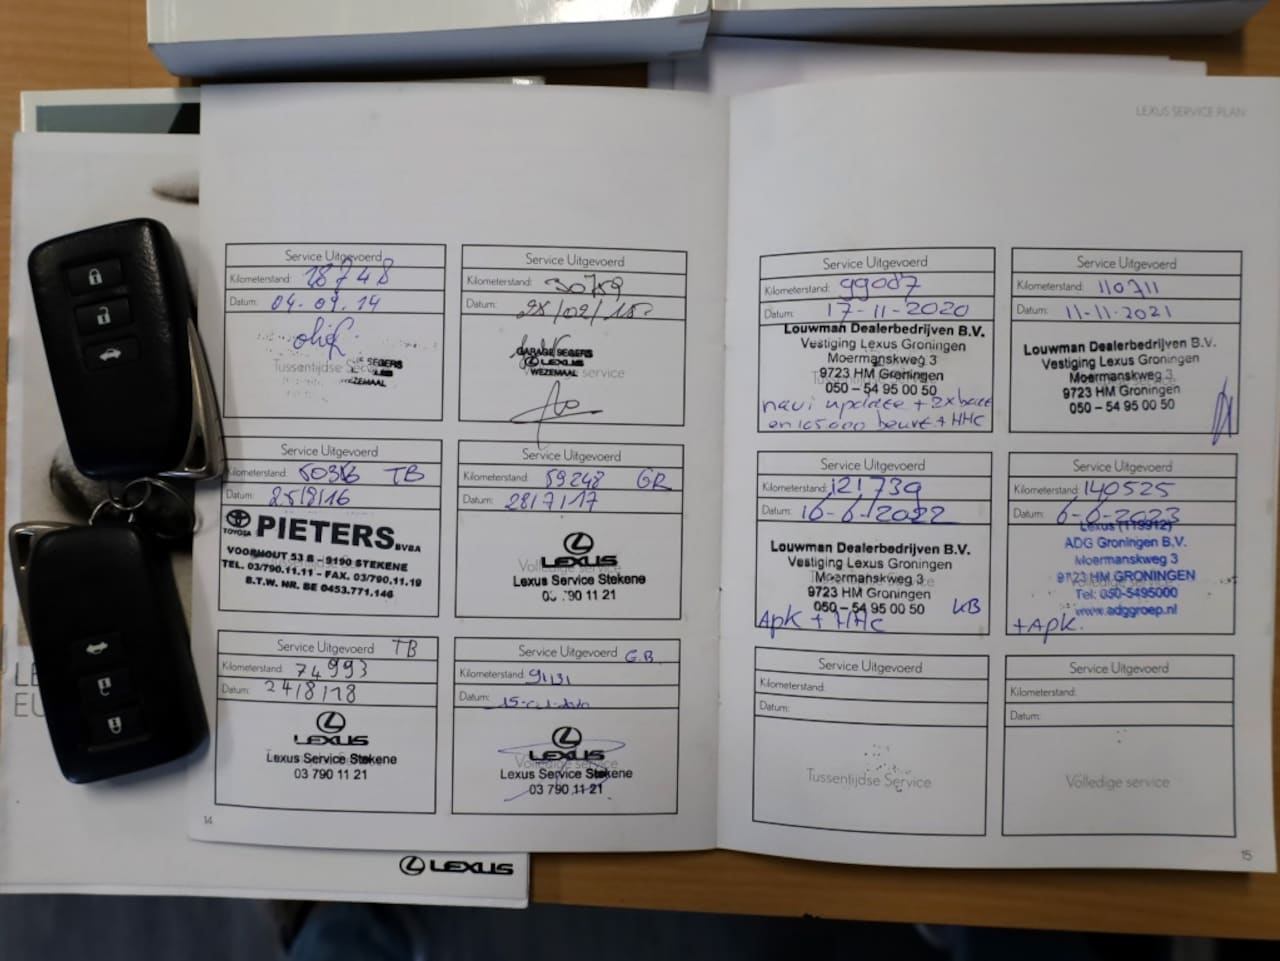 LEXUS SERVICE PLAN
Service Uitgevoerd
Kilometerstand: 18748
Datum: 04-09.14
Tussentijdse
SEGERS
WEZEMAAL
Service Uitgevoerd
Kilometerstand: 30759
Datum:
GARAGE SEGERS
LEXUS
WEZEMAAL
service
Service Uitgevoerd
Kilometerstand: TB
Datum: 25/8/16
TOYOTA PIETERS BVBA
VOORHOUT 53 B - 9190 STEKENE
TEL. 03/790.11.11 - FAX. 03/790.11.19
B.T.W. NR. BE 0453.771.146
Service Uitgevoerd
Kilometerstand: 59248 GR
Datum: 28/7/17
LEXUS
Lexus Service Stekene
790 11 21
Service Uitgevoerd TB
Kilometerstand: 74993
Datum: 24/8/18
LEXUS
Lexus Service Stekene
03 790 11 21
Service Uitgevoerd G.B.
Kilometerstand: 91131
Datum:
LEXUS
Lexus Service Stekene
03 790 11 21
14
Service Uitgevoerd
Kilometerstand: 99087
Datum: 17-11-2020
Louwman Dealerbedrijven B.V.
Vestiging Lexus Groningen
Moermanskweg 3
9723 HM Groningen
050 – 54 95 00 50
navi update + 2x
en 105.000 beurt + HHC
Service Uitgevoerd
Kilometerstand: 110711
Datum: 11-11-2021
Louwman Dealerbedrijven B.V.
Vestiging Lexus Groningen
Moermanskweg 3
9723 HM Groningen
050 – 54 95 00 50
Service Uitgevoerd
Kilometerstand: 121739
Datum: 16-6-2022
Louwman Dealerbedrijven B.V.
Vestiging Lexus Groningen
Moermanskweg 3
9723 HM Groningen
050 – 54 95 00 50 KB
Apk + HHC
Service Uitgevoerd
Kilometerstand: 140525
Datum: 6-6-2023
Lexus (119912)
ADG Groningen B.V.
Moermanskweg 3
9723 HM GRONINGEN
Volledige service
Tel: 050-5495000
www.adggroep.nl
+Apk.
Service Uitgevoerd
Kilometerstand:
Datum:
Tussentijdse Service
Service Uitgevoerd
Kilometerstand:
Datum:
Volledige service
15
LE
EU
LEXUS